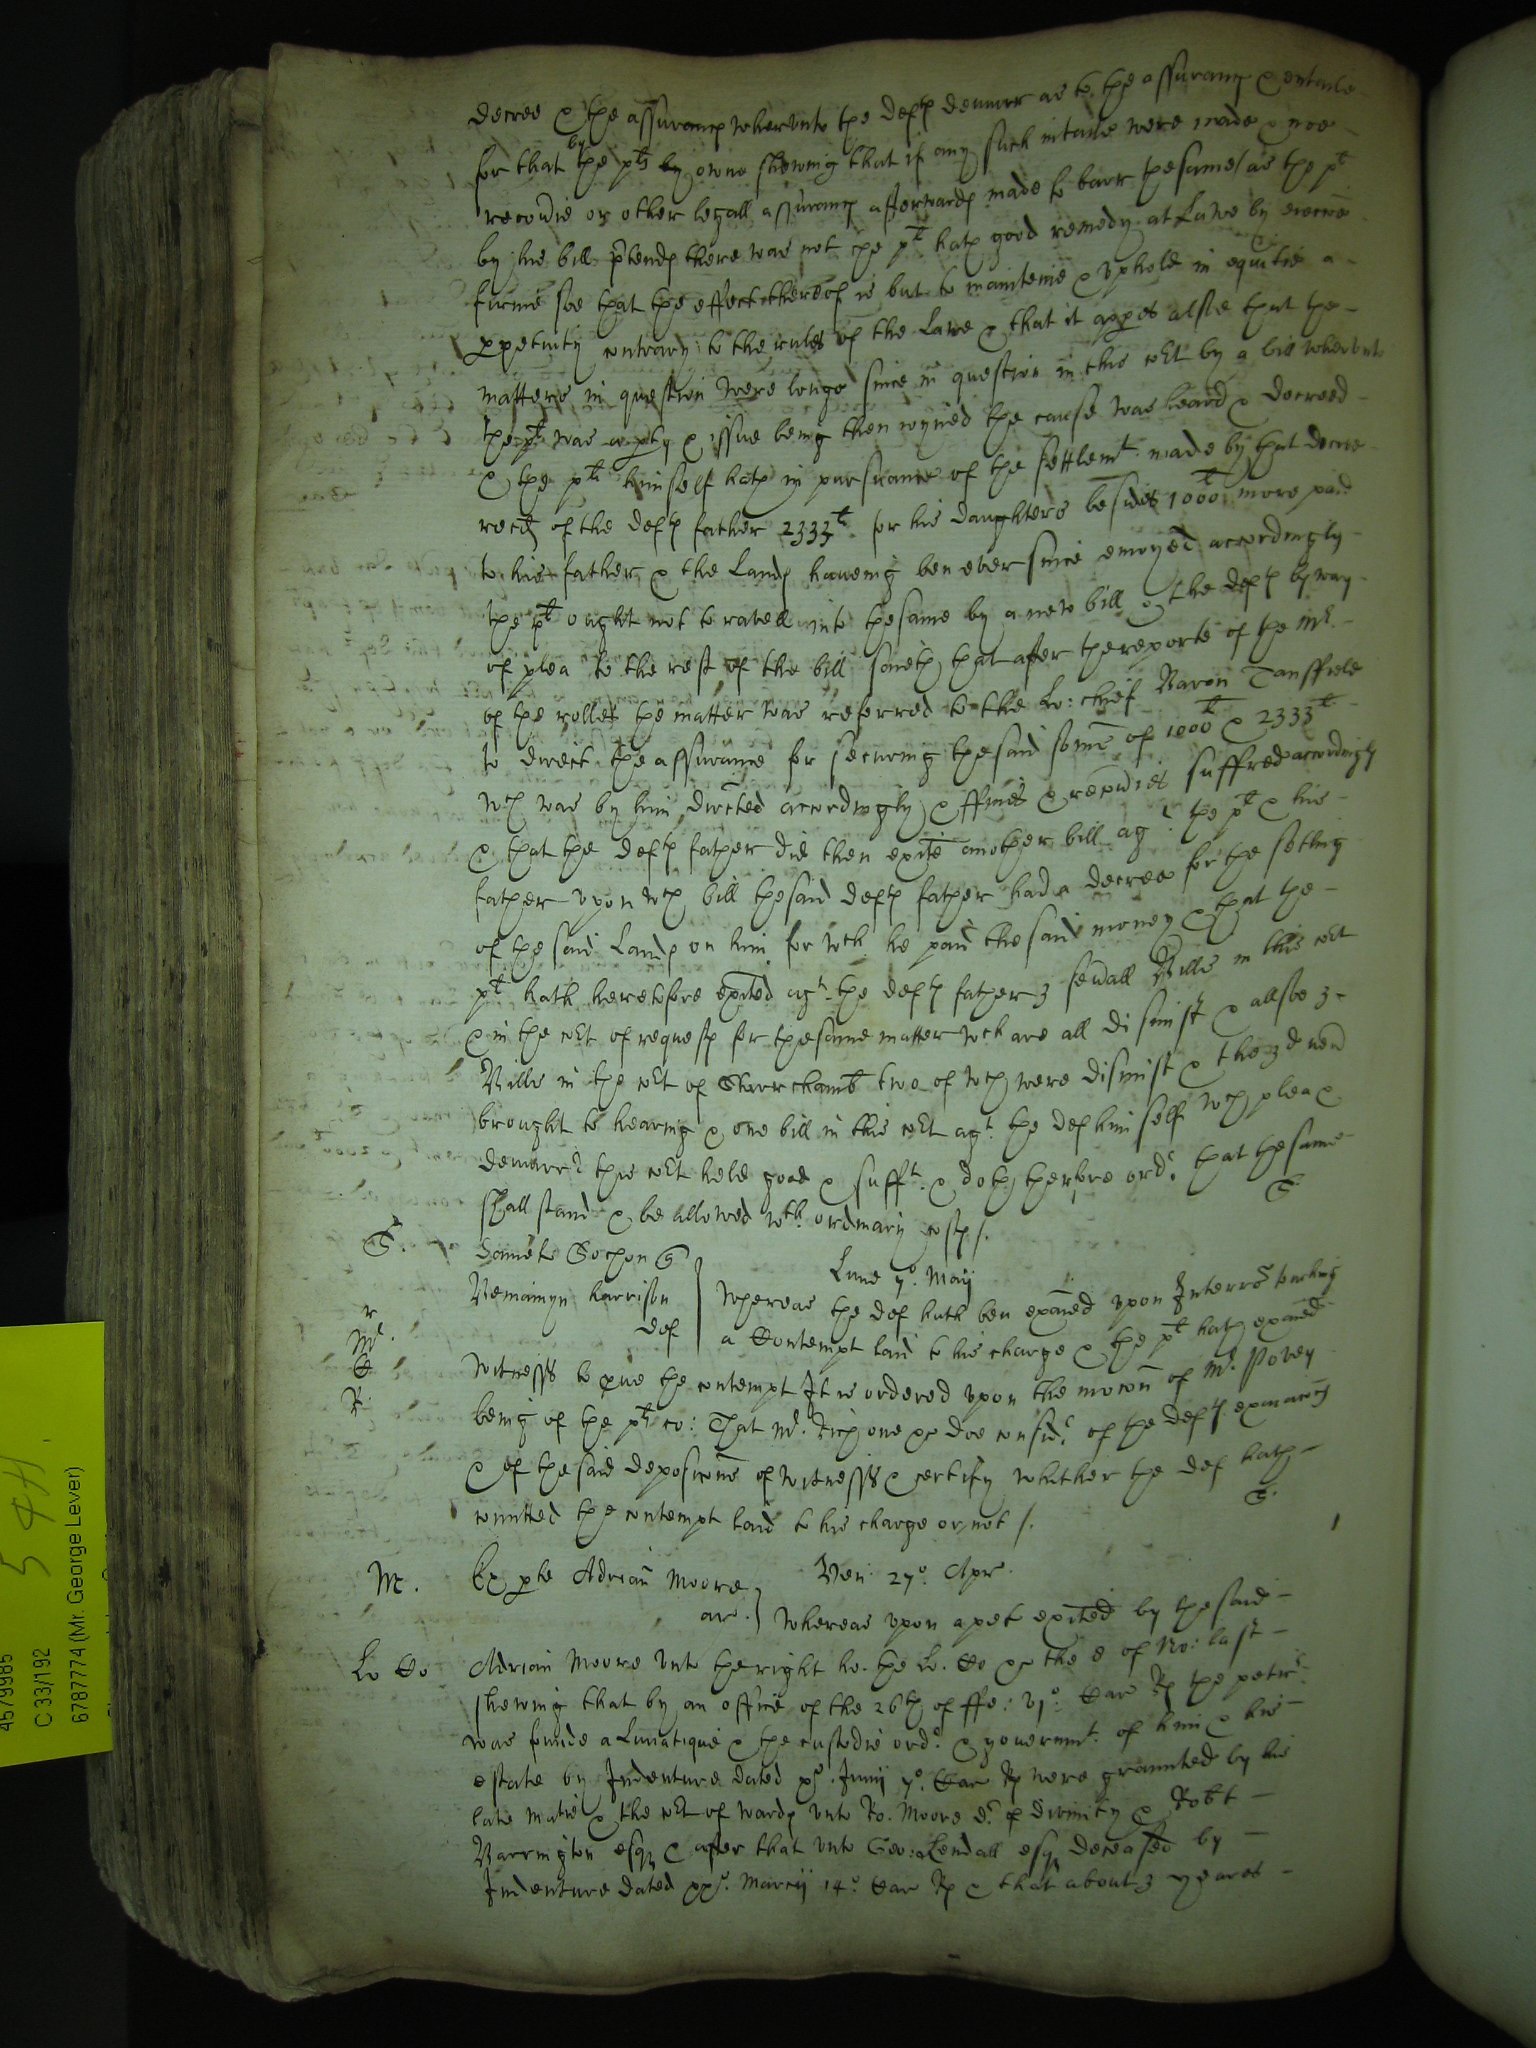 decree & the assurance wherunto the deft demurr as to the assurance & entaile
for that by the plts owne shewing that if any such intaile were made & noe
recovie or other legall assurance afterwards made to barr the same / as the plt
by his bill p̱tends there was not the plt hath good remedy at Lawe by
soe that the effect thereof is but to mainteine & uphold in equitie a
ppetuity contrary to the rules of the Lawe & that it appes alsoe that the
matters in question were longe since in question in this cot by a bill wherunto
the plt was a pty & issue being then ioyned the cause was heard & decreed
& the plt himself hath in pursuance of the settlemt made by that decree
recd of the defts father 2333l for his daughters besides 1000l more paid
to his father & the Lands haveing ben ever since enioyed accordingly
the plt ought not to ravell into the same by a new bill & the deft by way
of plea to the rest of the bill saieth that after the reporte of the Mr
of the rolles the matter was referred to the Lo: chief Baron Tanffield
to direct the assurance for securing the said some of 1000l & 2333l
wch was by him directed accordingly & ffines & recovies suffred accordingly
& that the defts father did then exite another bill agt the plt & his
father upon wch bill the said defts father had a decree for the setling
of the said Lands on him for wch he paid the said money & that the
plt hath heretofore exited agt the defts father 3 seuall Bills in this cot
& in the cot of requests for the same matter wch are all dismist & allsoe 3
Bills in the cot of Starrchamb two of wch were dismist & the 3d nev
brought to hearing & one bill in this cot agt the def himself wch plea &
demurr the cot held good & sufft & doth therfore ordr that the same
shall stand & be allowed wth ordinary costs /.
S.
S.
Daniell
Beniamyn Harrison
def
Lune 7o Maij
Whereas the def hath ben exaied upon Interros touching
a Contempt laid to his charge & the plt hath exaied
r
Mr.
C
R
witnesses to pue the contempt It is ordered upon the mocon of Mr Povey
being of the plts co: That Mr Rich one &c doe considr of the defts exinacon
& of the said deposicons of witnesses & certify whither the def hath
comitted the contempt laid to his charge or not /.
S.
M.
Ex pte Adrian Moore
ar.
Ven: 27o Apr.
Whereas upon a pet exited by the said
Lo Co
Adrian Moore unto the right ho. the Lo. Co &c the 8 of No: last
shewing that by an office of the 26th of ffe: Car Rs the petr
was founde a Lunatique & the custodie ordr & govermt of him & his
estate by Indenture dated Junij 7o Car Rs were graunted by his
late Matie & the cot of wards unto Ro. Moore dr of divinity & Robt
Barrington esqr & after that unto Geo: Kendall esqr deceased by
Indenture dated Marcij 14o Car Rs & that about 3 yeares
4579985
C 33/192
6787774 (Mr. George Lever)